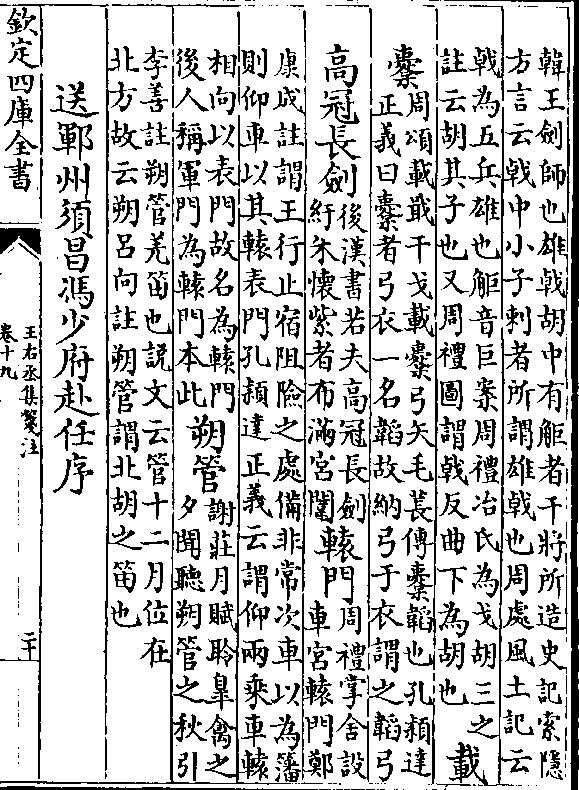 韓王劍師也雄戟胡中有𧣒者干將所造史記索隱
方言云戟中小子刺者所謂雄戟也周處風土記云
戟為五兵雄也𧣒音巨案周禮冶氏為戈胡三之
註云胡其子也又周禮圖謂戟反曲下為胡也
載
櫜
周頌載戢干戈載櫜弓矢毛萇傳櫜韜也孔穎達
正義曰櫜者弓衣一名韜故納弓于衣謂之韜弓
高冠長劍
後漢書若夫高冠長劍
紆朱懷紫者布滿宮闈
轅門
周禮掌舍設
車宮轅門鄭
康成註謂王行止宿阻險之處備非常次車以為藩
則仰車以其轅表門孔穎達正義云謂仰兩乘車轅
相向以表門故名為轅門
後人稱軍門為轅門本此
朔管
謝莊月賦聆皐禽之
夕聞聽朔管之秋引
李善註朔管羌笛也說文云管十二月位在
北方故云朔呂向註朔管謂北胡之笛也
送鄆州須昌馮少府赴任序
欽定四庫全書
王右丞集箋注
卷十九
二十